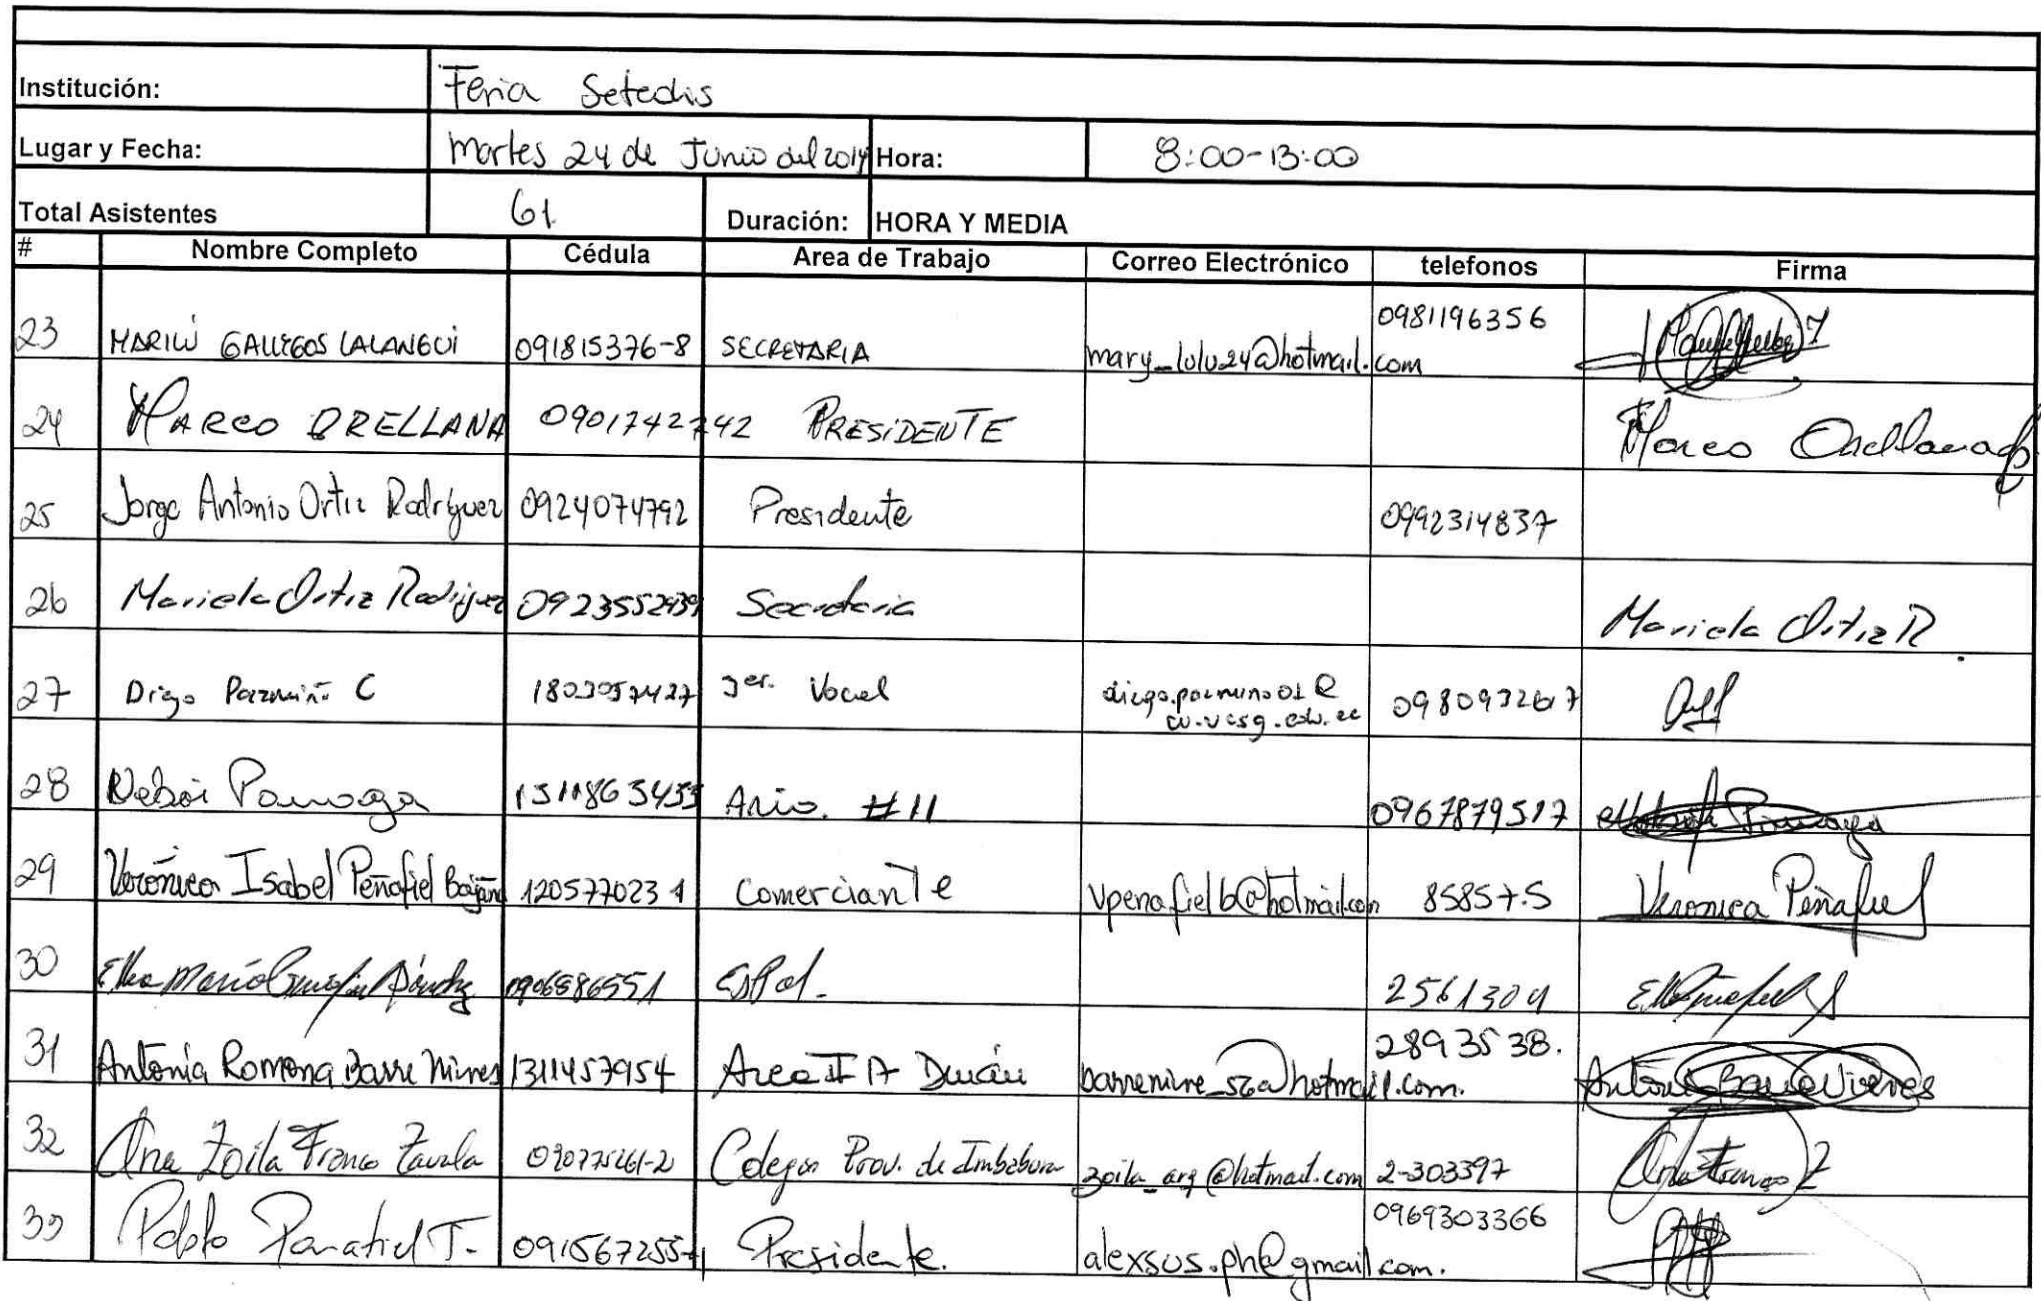 Institución: Feria Setedis
Lugar y Fecha: Martes 24 de Junio del 2014 Hora: 8:00-13:00
Total Asistentes 61 Duración: HORA Y MEDIA
# Nombre Completo Cédula Area de Trabajo Correo Electrónico telefonos Firma
23 MARILÚ GALLEGOS LALANGUI 091815376-8 SECRETARIA mary_lulu24@hotmail.com 0981196356
24 MARCO ORELLANA 0901742742 PRESIDENTE Marco Orellana
25 Jorge Antonio Ortiz Rodríguez 0924074792 Presidente 0992314837
26 Mariela Ortiz Rodríguez Secretaria Mariela Ortiz R
27 Diego Pazmiño C 1er. Vocal
28 Panaga # 11 0967879517
29 Verónica Isabel Peñafiel Bajaña 120577023 1 Comerciante vpenafielb@hotmail.com 85857.5 Veronica Peñafiel
30 Elba María Sánchez Espol. 2561304
31 Antonia Ramona Barre Nieves 1311457954 Area barrenieve_56@hotmail.com. 2893538. Antonia Barre Nieves
32 Ana Zoila Franco Zavala Colegio Prov. de Imbabura zoila_arg@hotmail.com 2-303397
33 Pablo T. Presidente. alexsus.ph@gmail.com. 0969303366